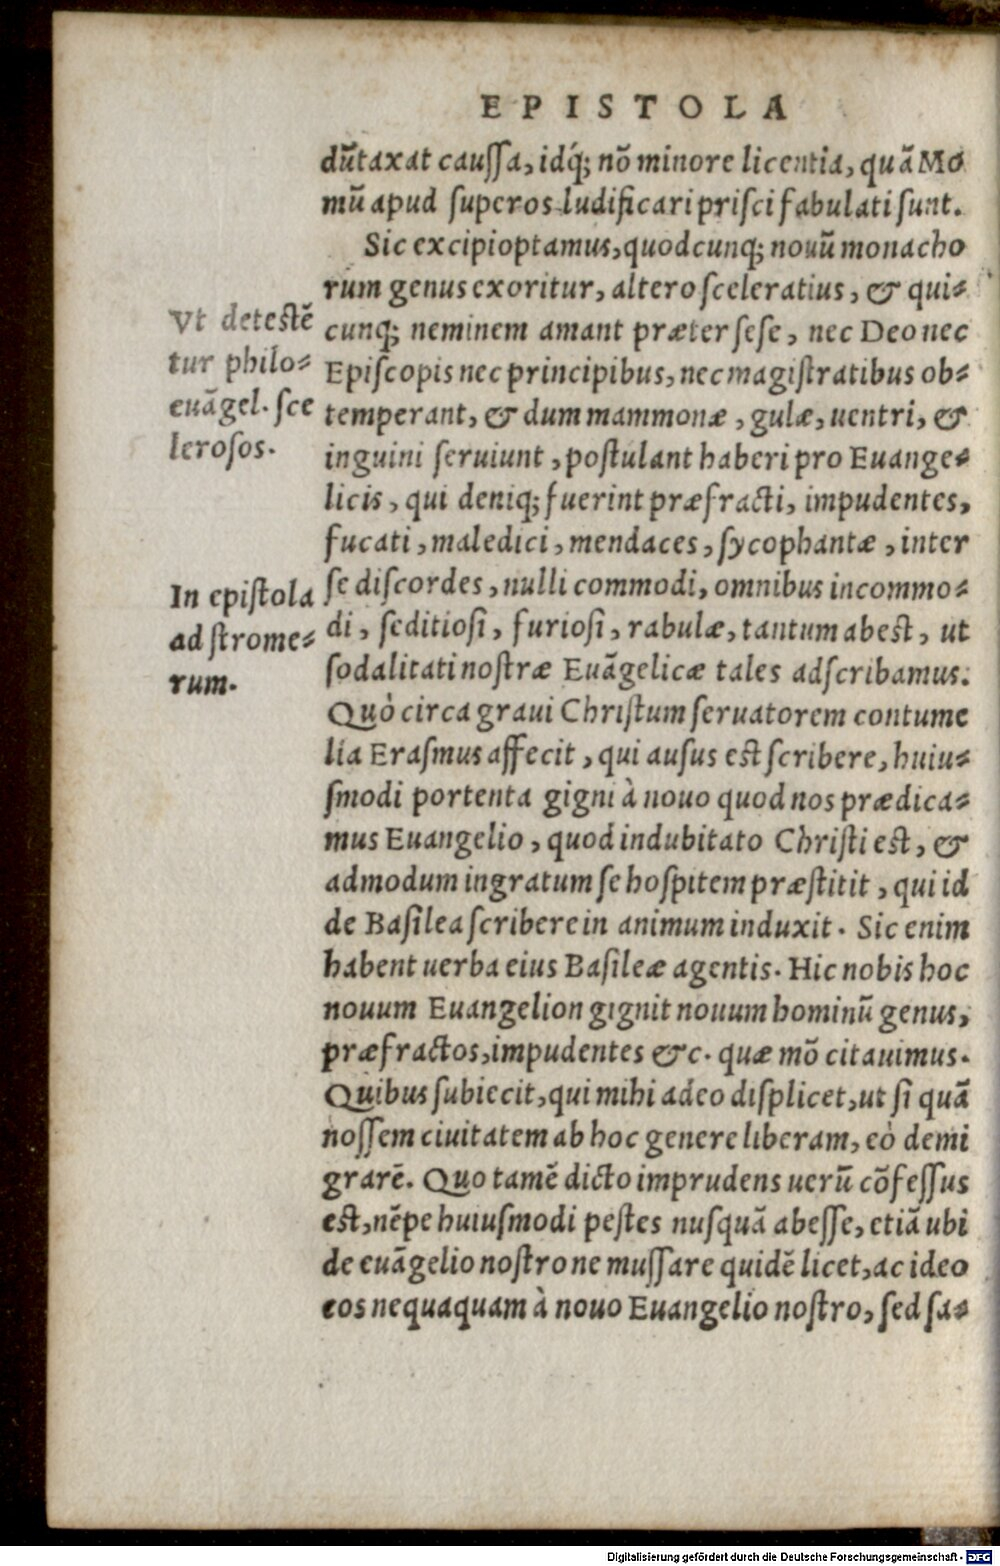 EPISTOLA
dũtaxat cauſſa, idq́; nõ minore licentia, quã Mo
mũ apud ſuperos ludificari priſci fabulati ſunt.
Sic excipi optamus, quodcunq; nouũ monacho
rum genus exoritur, altero ſceleratius, & qui⸗
cunq; neminem amant præter ſeſe, nec Deo nec
Epiſcopis nec principibus, nec magiſtratibus ob⸗
temperant, & dum mammonæ, gulæ, uentri, &
inguini ſeruiunt, poſtulant haberi pro Euange⸗
licis, qui deniq; fuerint præfracti, impudentes,
fucati, maledici, mendaces, ſycophantæ, inter
ſe diſcordes, nulli commodi, omnibus incommo⸗
di, ſeditioſi, furioſi, rabulæ, tantum abest, ut
ſodalitati nostræ Euãgelicæ tales adſcribamus.
Quò circa graui Chriſtum ſeruatorem contume
lia Eraſmus affecit, qui auſus est ſcribere, huiu⸗
ſmodi portenta gigni à nouo quod nos prædica⸗
mus Euangelio, quod indubitato Chriſti est, &
admodum ingratum ſe hoſpitem præſtitit, qui id
de Baſilea ſcribere in animum induxit. Sic enim
habent uerba eius Baſileæ agentis. Hic nobis hoc
nouum Euangelion gignit nouum hominũ genus,
præfractos, impudentes &c. quæ mõ citauimus.
Quibus ſubiecit, qui mihi adeo diſplicet, ut ſi quã
noſſem ciuitatem ab hoc genere liberam, eò demi
grarẽ. Quo tamẽ dicto imprudens uerũ cõfeſſus
est, nẽpe huiuſmodi peſtes nuſquã abeſſe, etiã ubi
de euãgelio noſtro ne muſſare quidẽ licet, ac ideo
eos nequaquam à nouo Euangelio noſtro, ſed ſa⸗
Vt detestẽ
tur philo⸗
euãgel. ſce
leroſos.
In epiſtola
ad ſtrome⸗
rum.
Digitalisierung gefördert durch die Deutsche Forschungsgemeinschaft - DFG